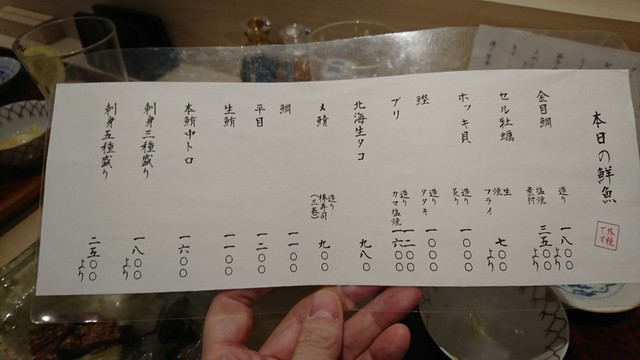 本日の鮮魚
外税です
金目鯛 造り 一八〇〇より
塩焼 煮付 三五〇〇より
セル牡蠣 生 焼 フライ 七〇〇より
ホッキ貝 造り 炙り 一〇〇〇
鰹 造り タタキ 一〇〇〇
ブリ 造り 一二〇〇
カマ塩焼 一六〇〇
北海生タコ 九八〇
〆鯖 造り 棒寿司(三巻) 九〇〇
鯛 一一〇〇
平目 一二〇〇
生鮪 一一〇〇
本鮪中トロ 一六〇〇
刺身三種盛り 一八〇〇より
刺身五種盛り 二五〇〇より